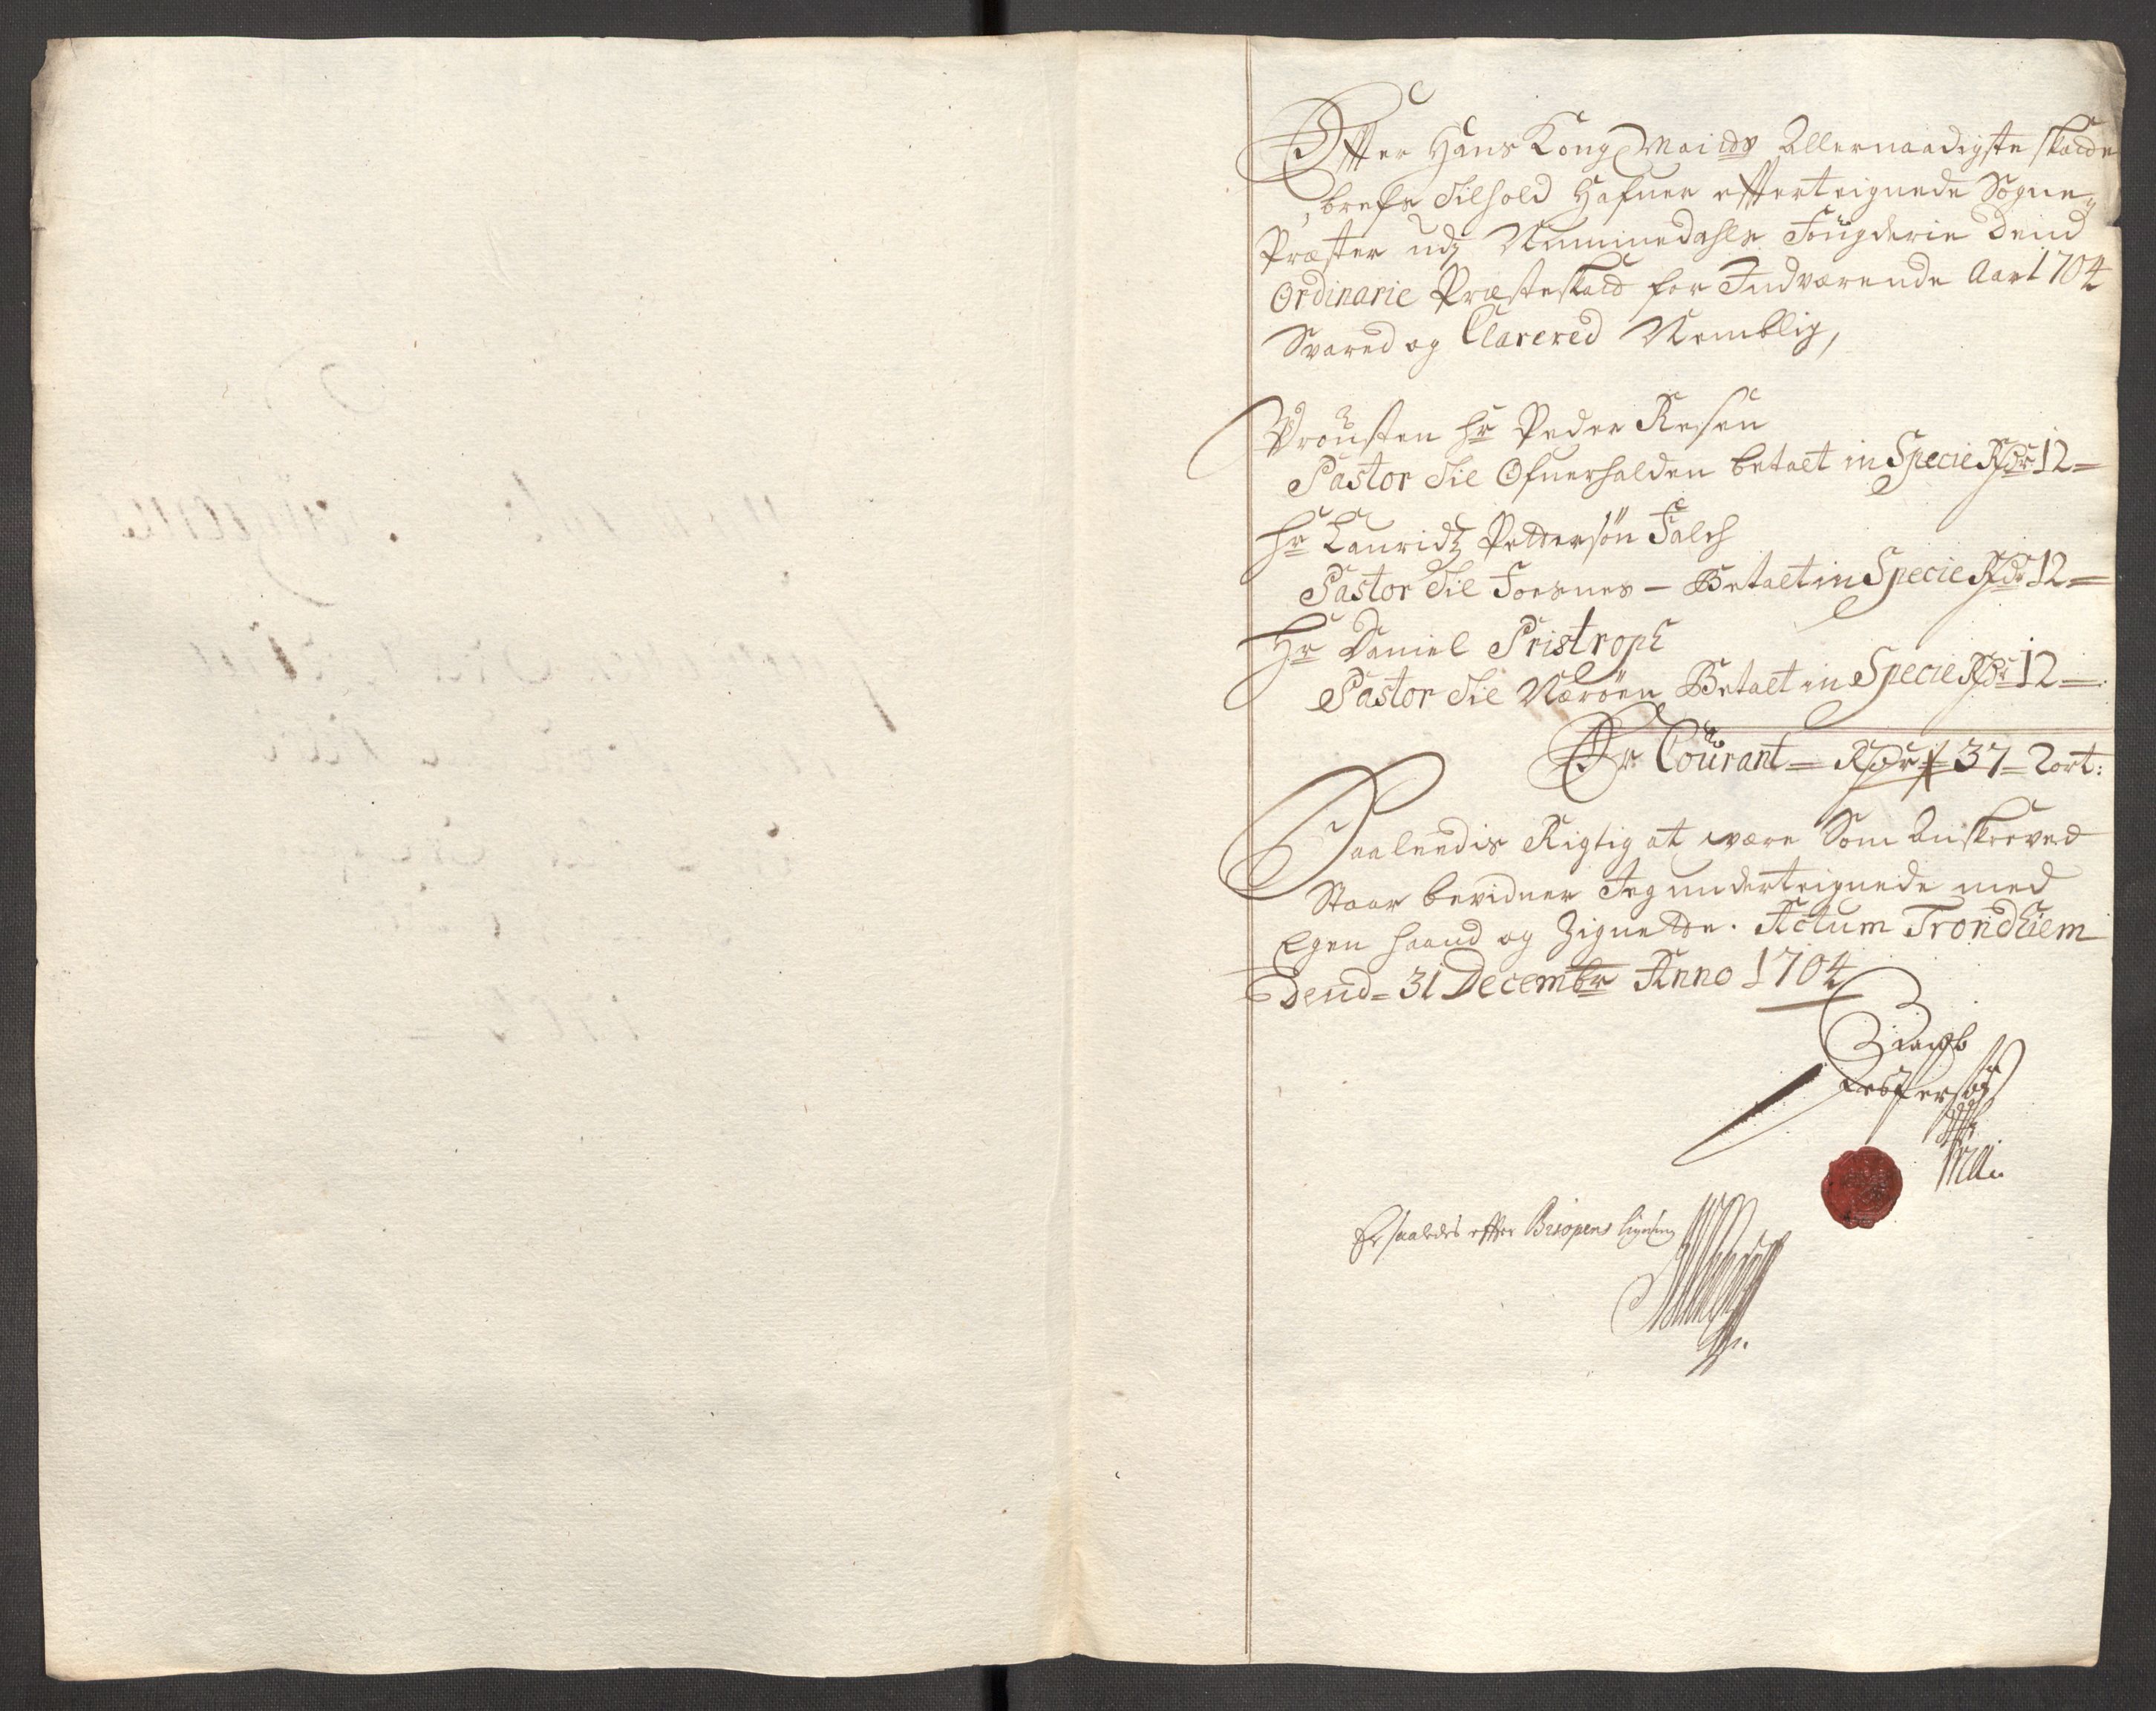 Effter Hans Kong Maits Allernaadigste skatte
brefs Tilhold Hafuer effterteignede Sogne-
Præster udj Nummedahls Fougderie Dend
Ordinarie Præsteskatt for Indværende Aar 1704
Svared og Clarered Nemblig,
Prousten Hr Peder Resen
Pastor Til Ofuerhalden betalt in Specie Rdr 12 =
Hr Lauridtz Pettersøn Falch
Pastor Til Foesnes - Betalt in Specie Rdr 12 =
Hr Daniel Pristroph
Pastor Til Nærøen Betalt in Specie Rdr 12 =
Er Courant = Rdr 37 = 2 ort:
Saaleedis Rigtig at være Som Anskreved
Staar bevidner Jeg underteignede med
Egen haand og Zignette. Actum Trondhiem
Dend = 31 Decembr Anno 1704
Er saaledes effter Bispens ligning